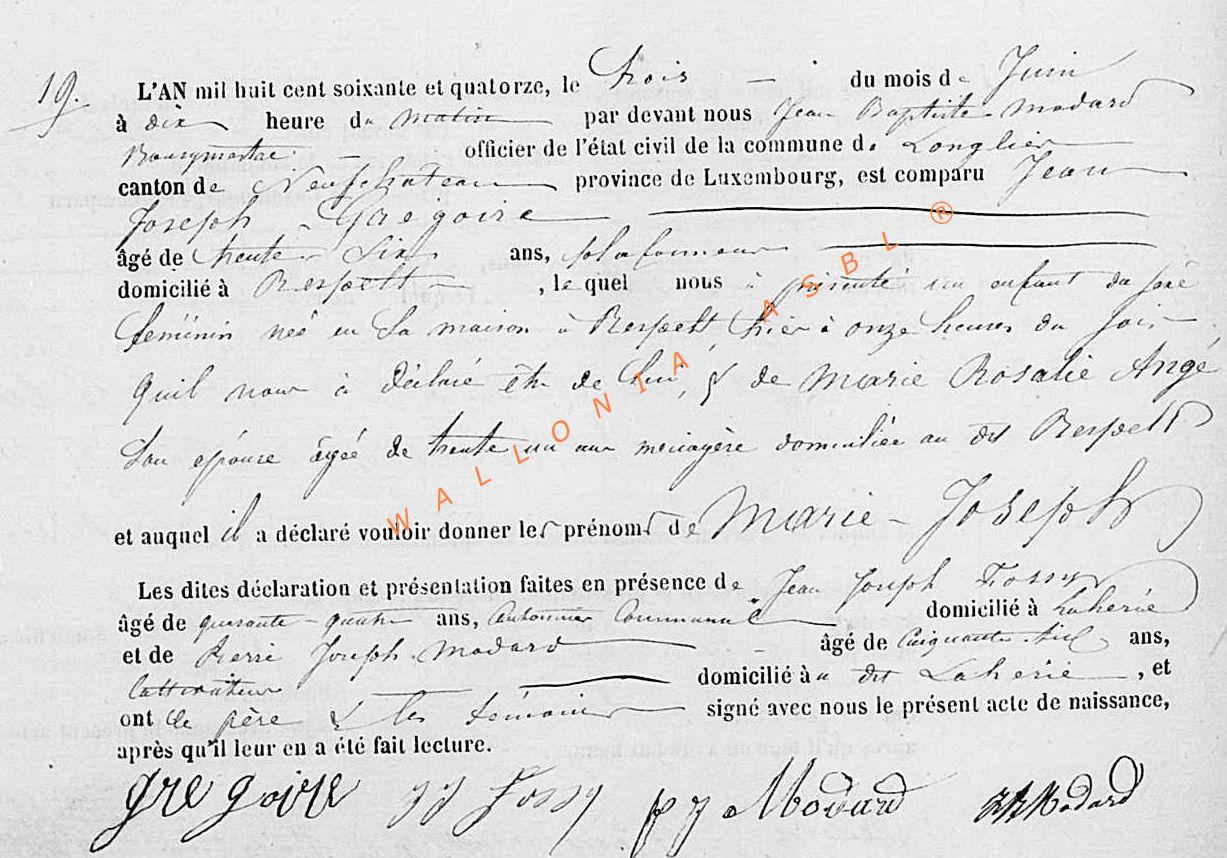 19.
L'AN mil huit cent soixante et quatorze, le trois — du mois de Juin
à dix heure du Matin par devant nous Jean Baptiste Modard
Bourgmestre — officier de l'état civil de la commune de Longlier
canton de Neufchateau province de Luxembourg, est comparu Jean
Joseph Gregoire
âgé de trente six ans, plafonneur
domicilié à Respelt, le quel nous à présenté un enfant du sexe
feminin née en sa maison à Respelt hier à onze heures du soir
quil nous à déclaré être de lui & de Marie Rosalie Angé
Son epouse agée de trente un ans menagère domiciliée au dit Respelt
et auquel il a déclaré vouloir donner les prénoms de Marie - Joseph
Les dites déclaration et présentation faites en présence de Jean Joseph Fossy
âgé de quarante-quatre ans, Cantonnier Communal domicilié à Laherie
et de Pierre Joseph Modard âgé de Cinquante-six ans,
Cultivateur domicilié au dit Laherie, et
ont le père & les témoins signé avec nous le présent acte de naissance,
après qu'il leur en a été fait lecture.
Gregoire JJ Fossy P J Modard JB Modard
WALLONIA ASBL ®